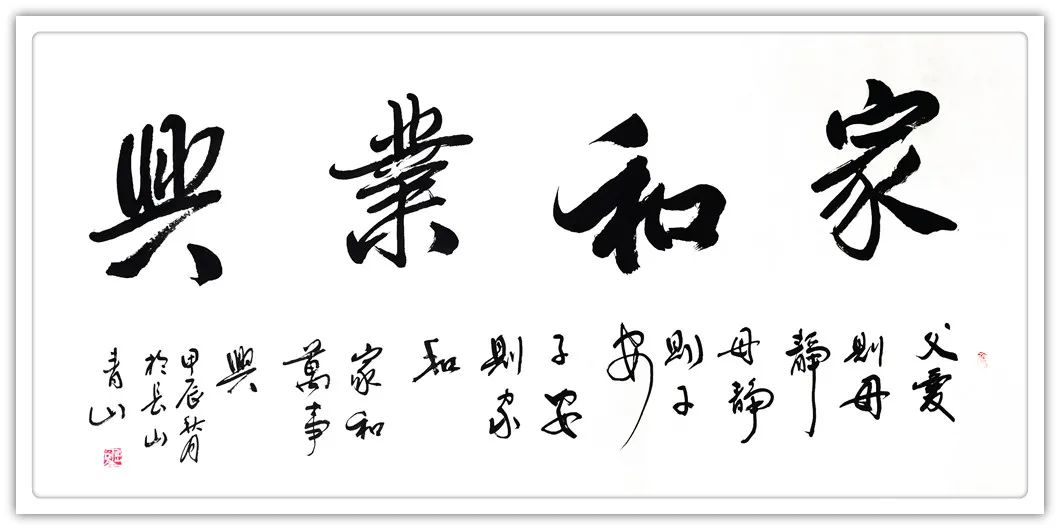 家和業興
父愛
則母
靜
母靜
則子
安
子安
則家
和
家和
萬事
興
甲辰秋月
於長山
青山